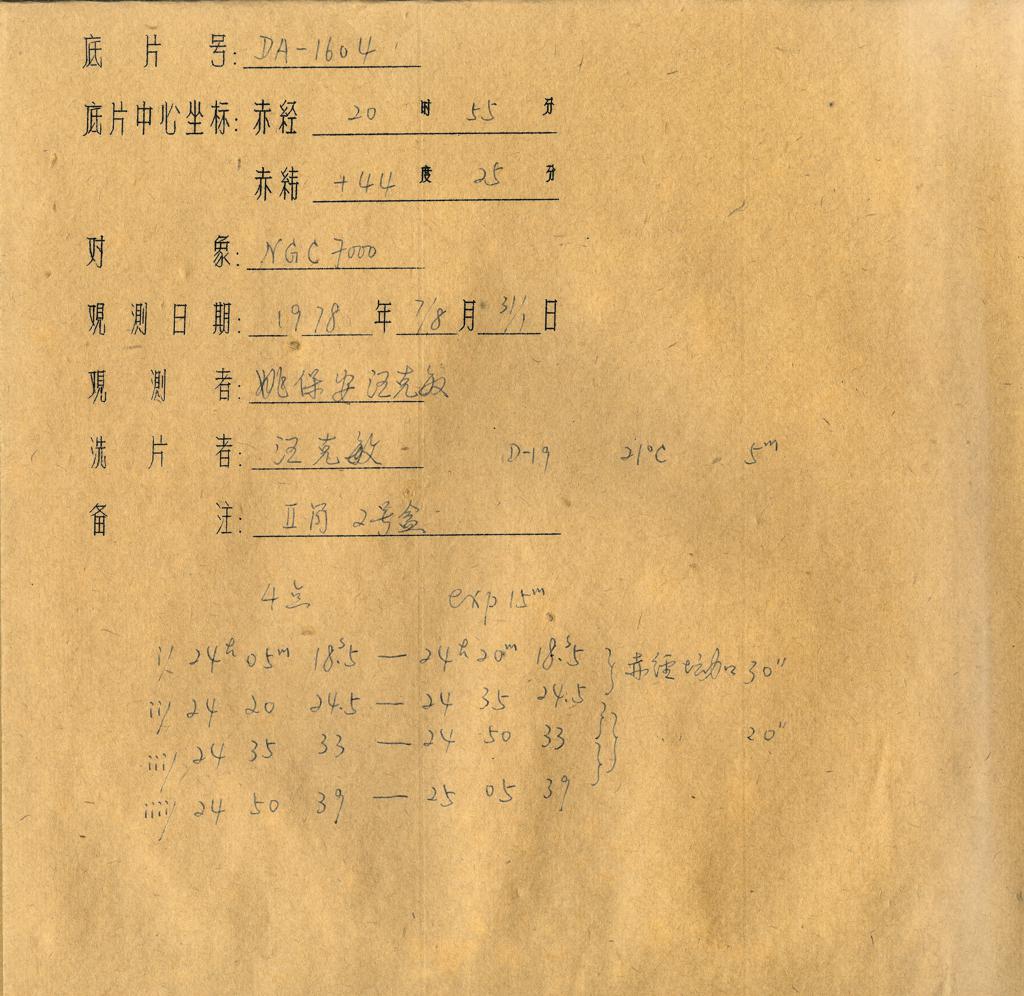 底片号: DA-1604
底片中心坐标: 赤经 20 时 55 分
赤纬 +44 度 25 分
对象: NGC 7000
观测日期: 1978 年 7/8 月 31/1 日
观测者: 姚保安 汪克敏
洗片者: 汪克敏 D-19 21°C 5ᵐ
备注: II 2号盒
4点 exp 15ᵐ
i) 24ʰ 05ᵐ 18ˢ.5 — 24ʰ 20ᵐ 18ˢ.5 } 赤经增加 30"
ii) 24 20 24.5 — 24 35 24.5
iii) 24 35 33 — 24 50 33 } .. 20"
iiii) 24 50 39 — 25 05 39